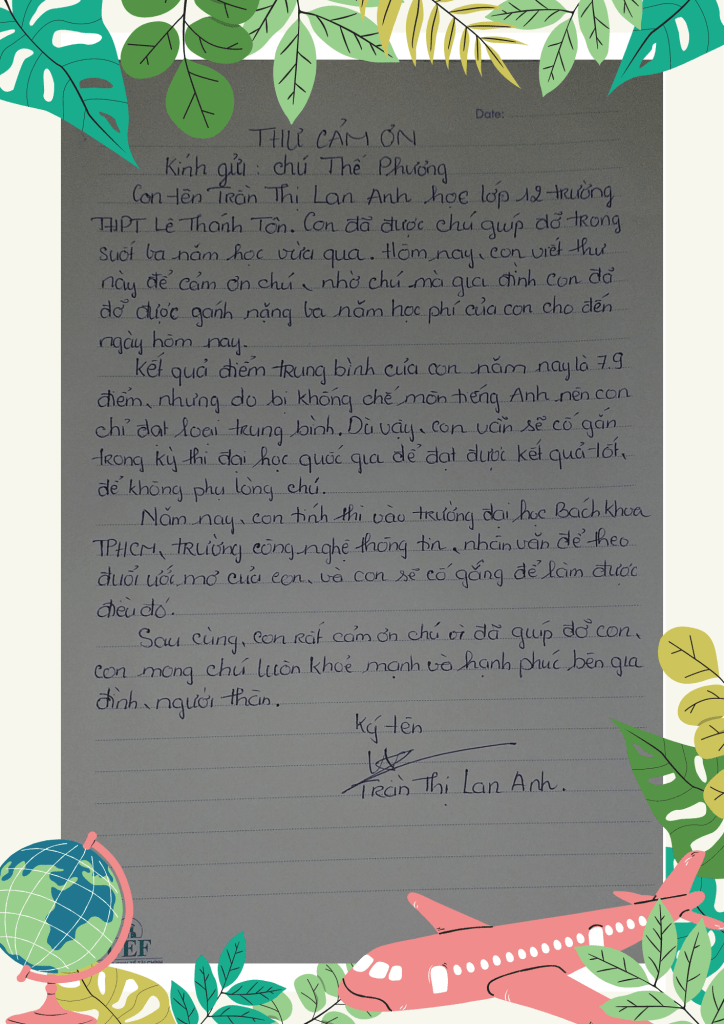 Date:
THƯ CẢM ƠN
Kính gửi : chú Thế Phương
Con tên Trần Thị Lan Anh học lớp 12 trường
THPT Lê Thánh Tôn. Con đã được chú giúp đỡ trong
suốt ba năm học vừa qua. Hôm nay, con viết thư
này để cảm ơn chú, nhờ chú mà gia đình con đã
đỡ được gánh nặng ba năm học phí của con cho đến
ngày hôm nay.
Kết quả điểm trung bình của con năm nay là 7.9
điểm, nhưng do bị khống chế môn tiếng Anh nên con
chỉ đạt loại trung bình. Dù vậy, con vẫn sẽ cố gắn
trong kỳ thi đại học quốc gia để đạt được kết quả tốt,
để không phụ lòng chú.
Năm nay, con tính thi vào trường đại học Bách khoa
TPHCM, trường công nghệ thông tin, nhân văn để theo
đuổi ước mơ của con, và con sẽ cố gắng để làm được
điều đó.
Sau cùng, con rất cảm ơn chú vì đã giúp đỡ con,
con mong chú luôn khoẻ mạnh và hạnh phúc bên gia
đình, người thân.
Ký tên
Trần Thị Lan Anh.
EF